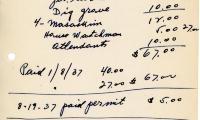 Dig grave 10.00
4- Masaokim 12.00
House Watchman 5.00 27.00
Attendants 10.00
$67.00
Paid 1/8/37 40.00
27.00 $67.00
8-19-37 paid permit $5.00